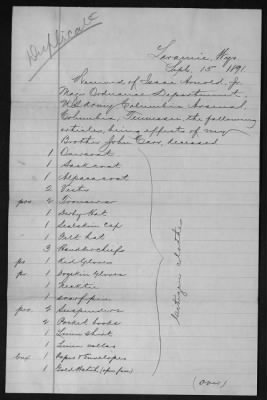 Duplicate
Laramie, Wyo.
Sept. 15 1891.
Received of Isaac Arnold, Jr.
Maj Ordnance Department,
U.S. Army Columbia Arsenal,
Columbia, Tennessee, the following
articles, being effects of my
Brother John Carr, deceased
1 Overcoat
1 Sack coat
1 Alpaca coat
2 Vests
prs 2 Trousers
1 Derby Hat
1 Sealskin Cap
1 Felt hat
3 Handkerchiefs
pr 1 Kid Gloves
pr 1 Dogskin Gloves
1 Necktie
1 Scarf pin
prs 2 Suspenders
2 Pocket books
1 Linen Shirt
1 Linen collar
box 1 Paper & Envelopes
1 Gold Watch (open face)
Citizen clothes
(over)